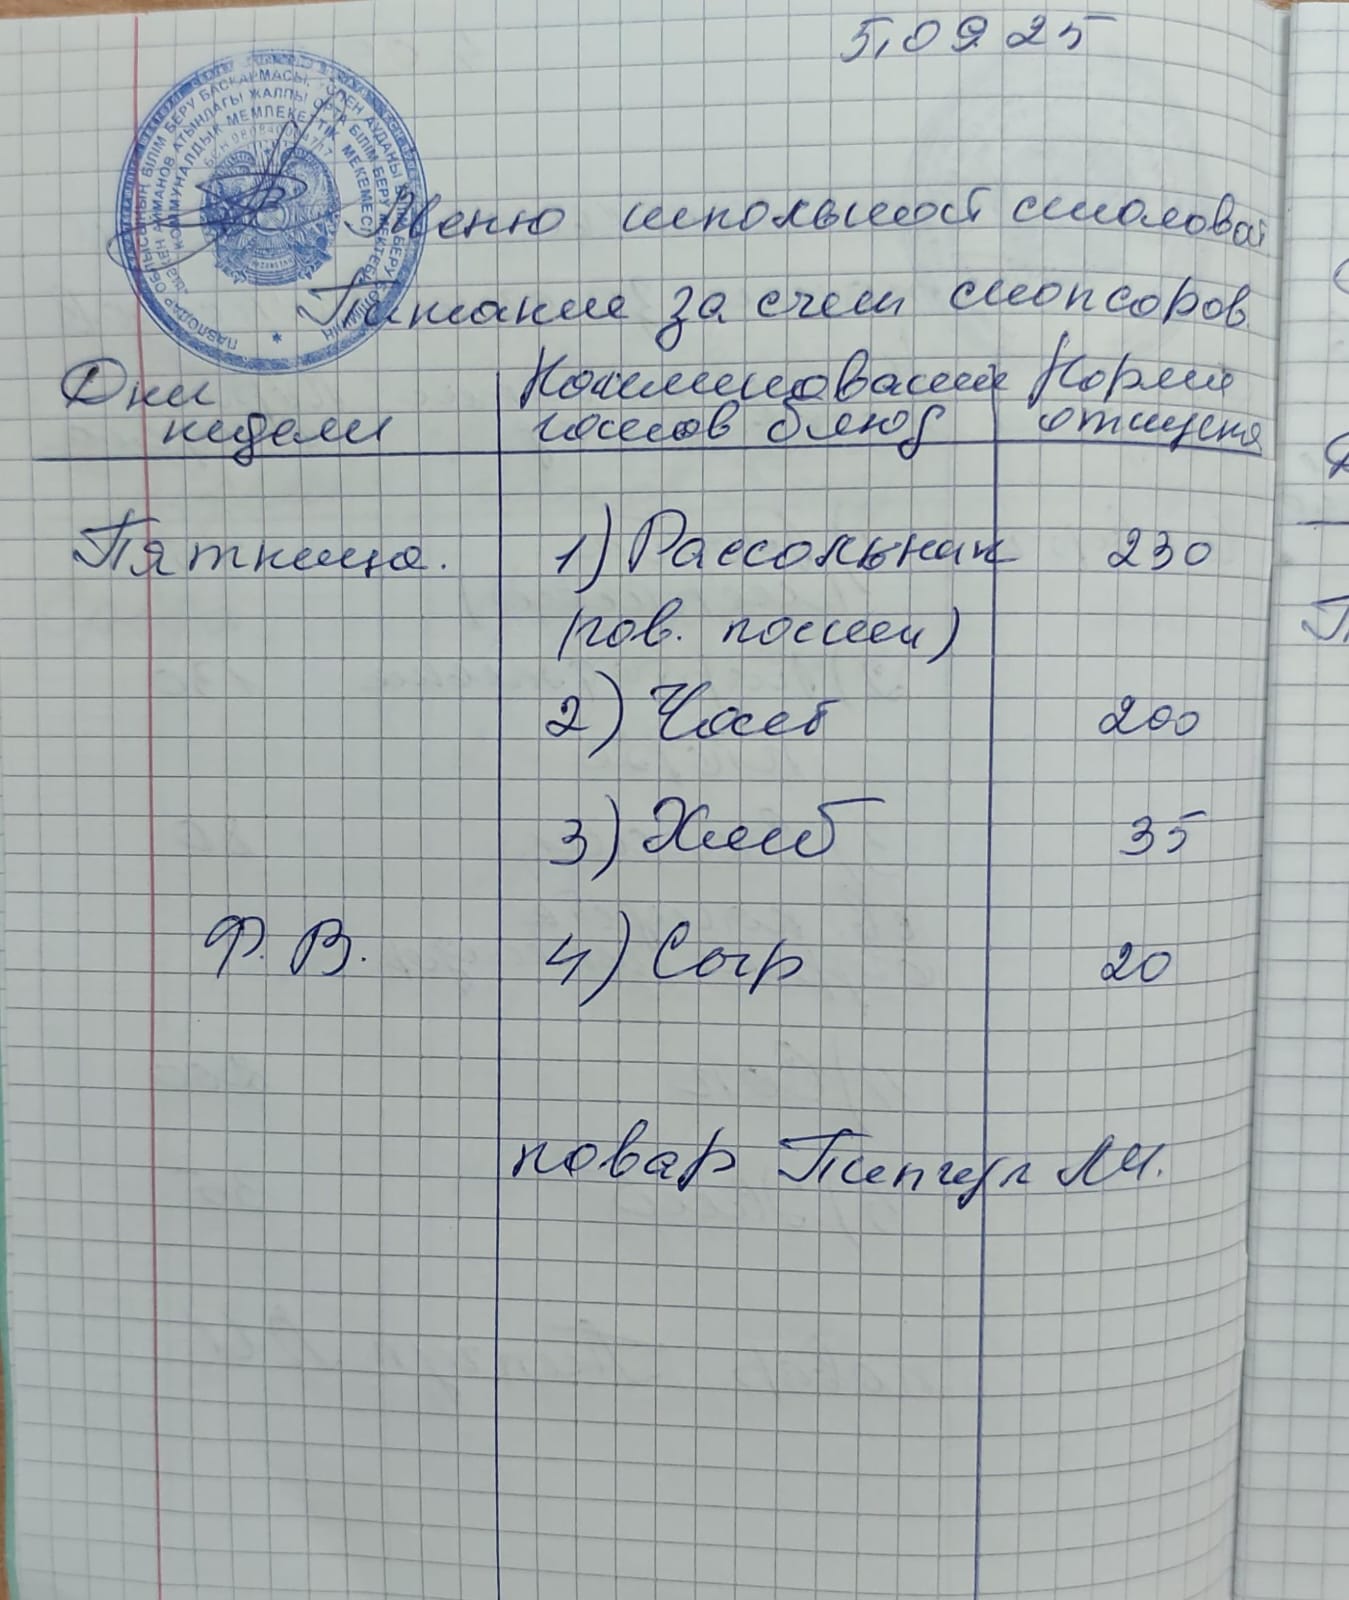 5.09 25
Меню школьной столовой
Питание за счет спонсоров.
Дни Наименование Нормы
недели готов блюд отпуска
Пятница. 1) Рассольник 230
(гов.
2) Чай 200
3) Хлеб 35
Ф. В. 4) Сыр 20
повар Типчул
ПАВЛОДАР ОБЛЫСЫНЫҢ БІЛІМ БЕРУ БАСҚАРМАСЫ АУДАНЫ БІЛІМ БЕРУ БӨЛІМІНІҢ
АЙМАНОВ АТЫНДАҒЫ ЖАЛПЫ ОРТА БІЛІМ БЕРУ МЕКТЕБІ
КОММУНАЛДЫҚ МЕМЛЕКЕТТІК МЕКЕМЕСІ